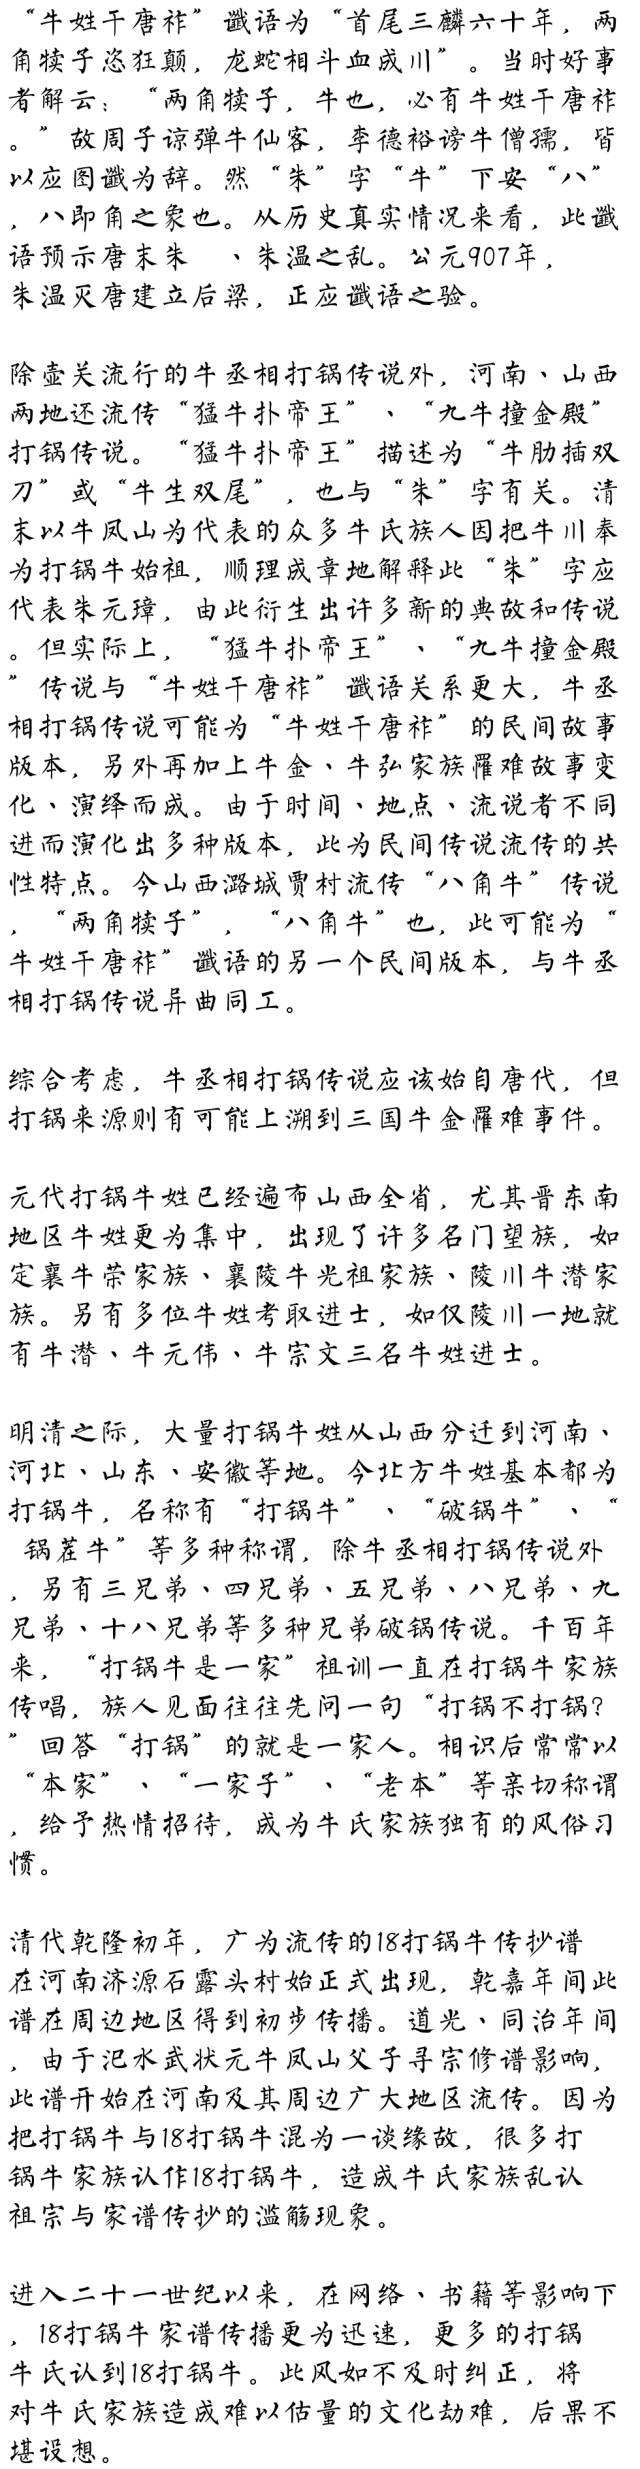 “牛姓干唐祚”谶语为“首尾三麟六十年，两
角犊子恣狂颠，龙蛇相斗血成川”。当时好事
者解云：“两角犊子，牛也，必有牛姓干唐祚
。”故周子谅弹牛仙客，李德裕谤牛僧孺，皆
以应图谶为辞。然“朱”字“牛”下安“八”
，八即角之象也。从历史真实情况来看，此谶
语预示唐末朱　、朱温之乱。公元907年，
朱温灭唐建立后梁，正应谶语之验。
除壶关流行的牛丞相打锅传说外，河南、山西
两地还流传“猛牛扑帝王”、“九牛撞金殿”
打锅传说。“猛牛扑帝王”描述为“牛肋插双
刀”或“牛生双尾”，也与“朱”字有关。清
末以牛凤山为代表的众多牛氏族人因把牛川奉
为打锅牛始祖，顺理成章地解释此“朱”字应
代表朱元璋，由此衍生出许多新的典故和传说
。但实际上，“猛牛扑帝王”、“九牛撞金殿
”传说与“牛姓干唐祚”谶语关系更大，牛丞
相打锅传说可能为“牛姓干唐祚”的民间故事
版本，另外再加上牛金、牛弘家族罹难故事变
化、演绎而成。由于时间、地点、流说者不同
进而演化出多种版本，此为民间传说流传的共
性特点。今山西潞城贾村流传“八角牛”传说
，“两角犊子”，“八角牛”也，此可能为“
牛姓干唐祚”谶语的另一个民间版本，与牛丞
相打锅传说异曲同工。
综合考虑，牛丞相打锅传说应该始自唐代，但
打锅来源则有可能上溯到三国牛金罹难事件。
元代打锅牛姓已经遍布山西全省，尤其晋东南
地区牛姓更为集中，出现了许多名门望族，如
定襄牛荣家族、襄陵牛光祖家族、陵川牛潜家
族。另有多位牛姓考取进士，如仅陵川一地就
有牛潜、牛元伟、牛宗文三名牛姓进士。
明清之际，大量打锅牛姓从山西分迁到河南、
河北、山东、安徽等地。今北方牛姓基本都为
打锅牛，名称有“打锅牛”、“破锅牛”、“
锅茬牛”等多种称谓，除牛丞相打锅传说外
，另有三兄弟、四兄弟、五兄弟、八兄弟、九
兄弟、十八兄弟等多种兄弟破锅传说。千百年
来，“打锅牛是一家”祖训一直在打锅牛家族
传唱，族人见面往往先问一句“打锅不打锅？
”回答“打锅”的就是一家人。相识后常常以
“本家”、“一家子”、“老本”等亲切称谓
，给予热情招待，成为牛氏家族独有的风俗习
惯。
清代乾隆初年，广为流传的18打锅牛传抄谱
在河南济源石露头村始正式出现，乾嘉年间此
谱在周边地区得到初步传播。道光、同治年间
，由于汜水武状元牛凤山父子寻宗修谱影响，
此谱开始在河南及其周边广大地区流传。因为
把打锅牛与18打锅牛混为一谈缘故，很多打
锅牛家族认作18打锅牛，造成牛氏家族乱认
祖宗与家谱传抄的滥觞现象。
进入二十一世纪以来，在网络、书籍等影响下
，18打锅牛家谱传播更为迅速，更多的打锅
牛氏认到18打锅牛。此风如不及时纠正，将
对牛氏家族造成难以估量的文化劫难，后果不
堪设想。